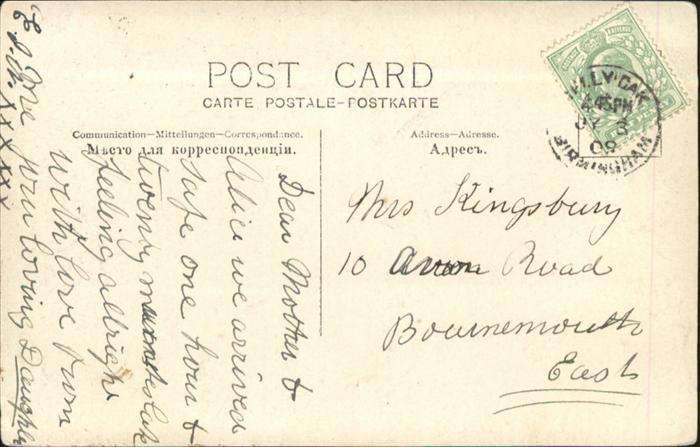 POST CARD
CARTE POSTALE-POSTKARTE
Communication-Mitteilungen-Correspondance.
Мѣсто для корреспонденціи.
Address-Adresse.
Адресъ.
4.45PM
JY 3
09
BIRMINGHAM
Dear Mother &
Alice we arrived
safe one hour &
twenty late
feeling allright
with love from
your loving Daughter
XXXXX
Mrs Kingsbury
10 Avon Road
Bournemouth
East